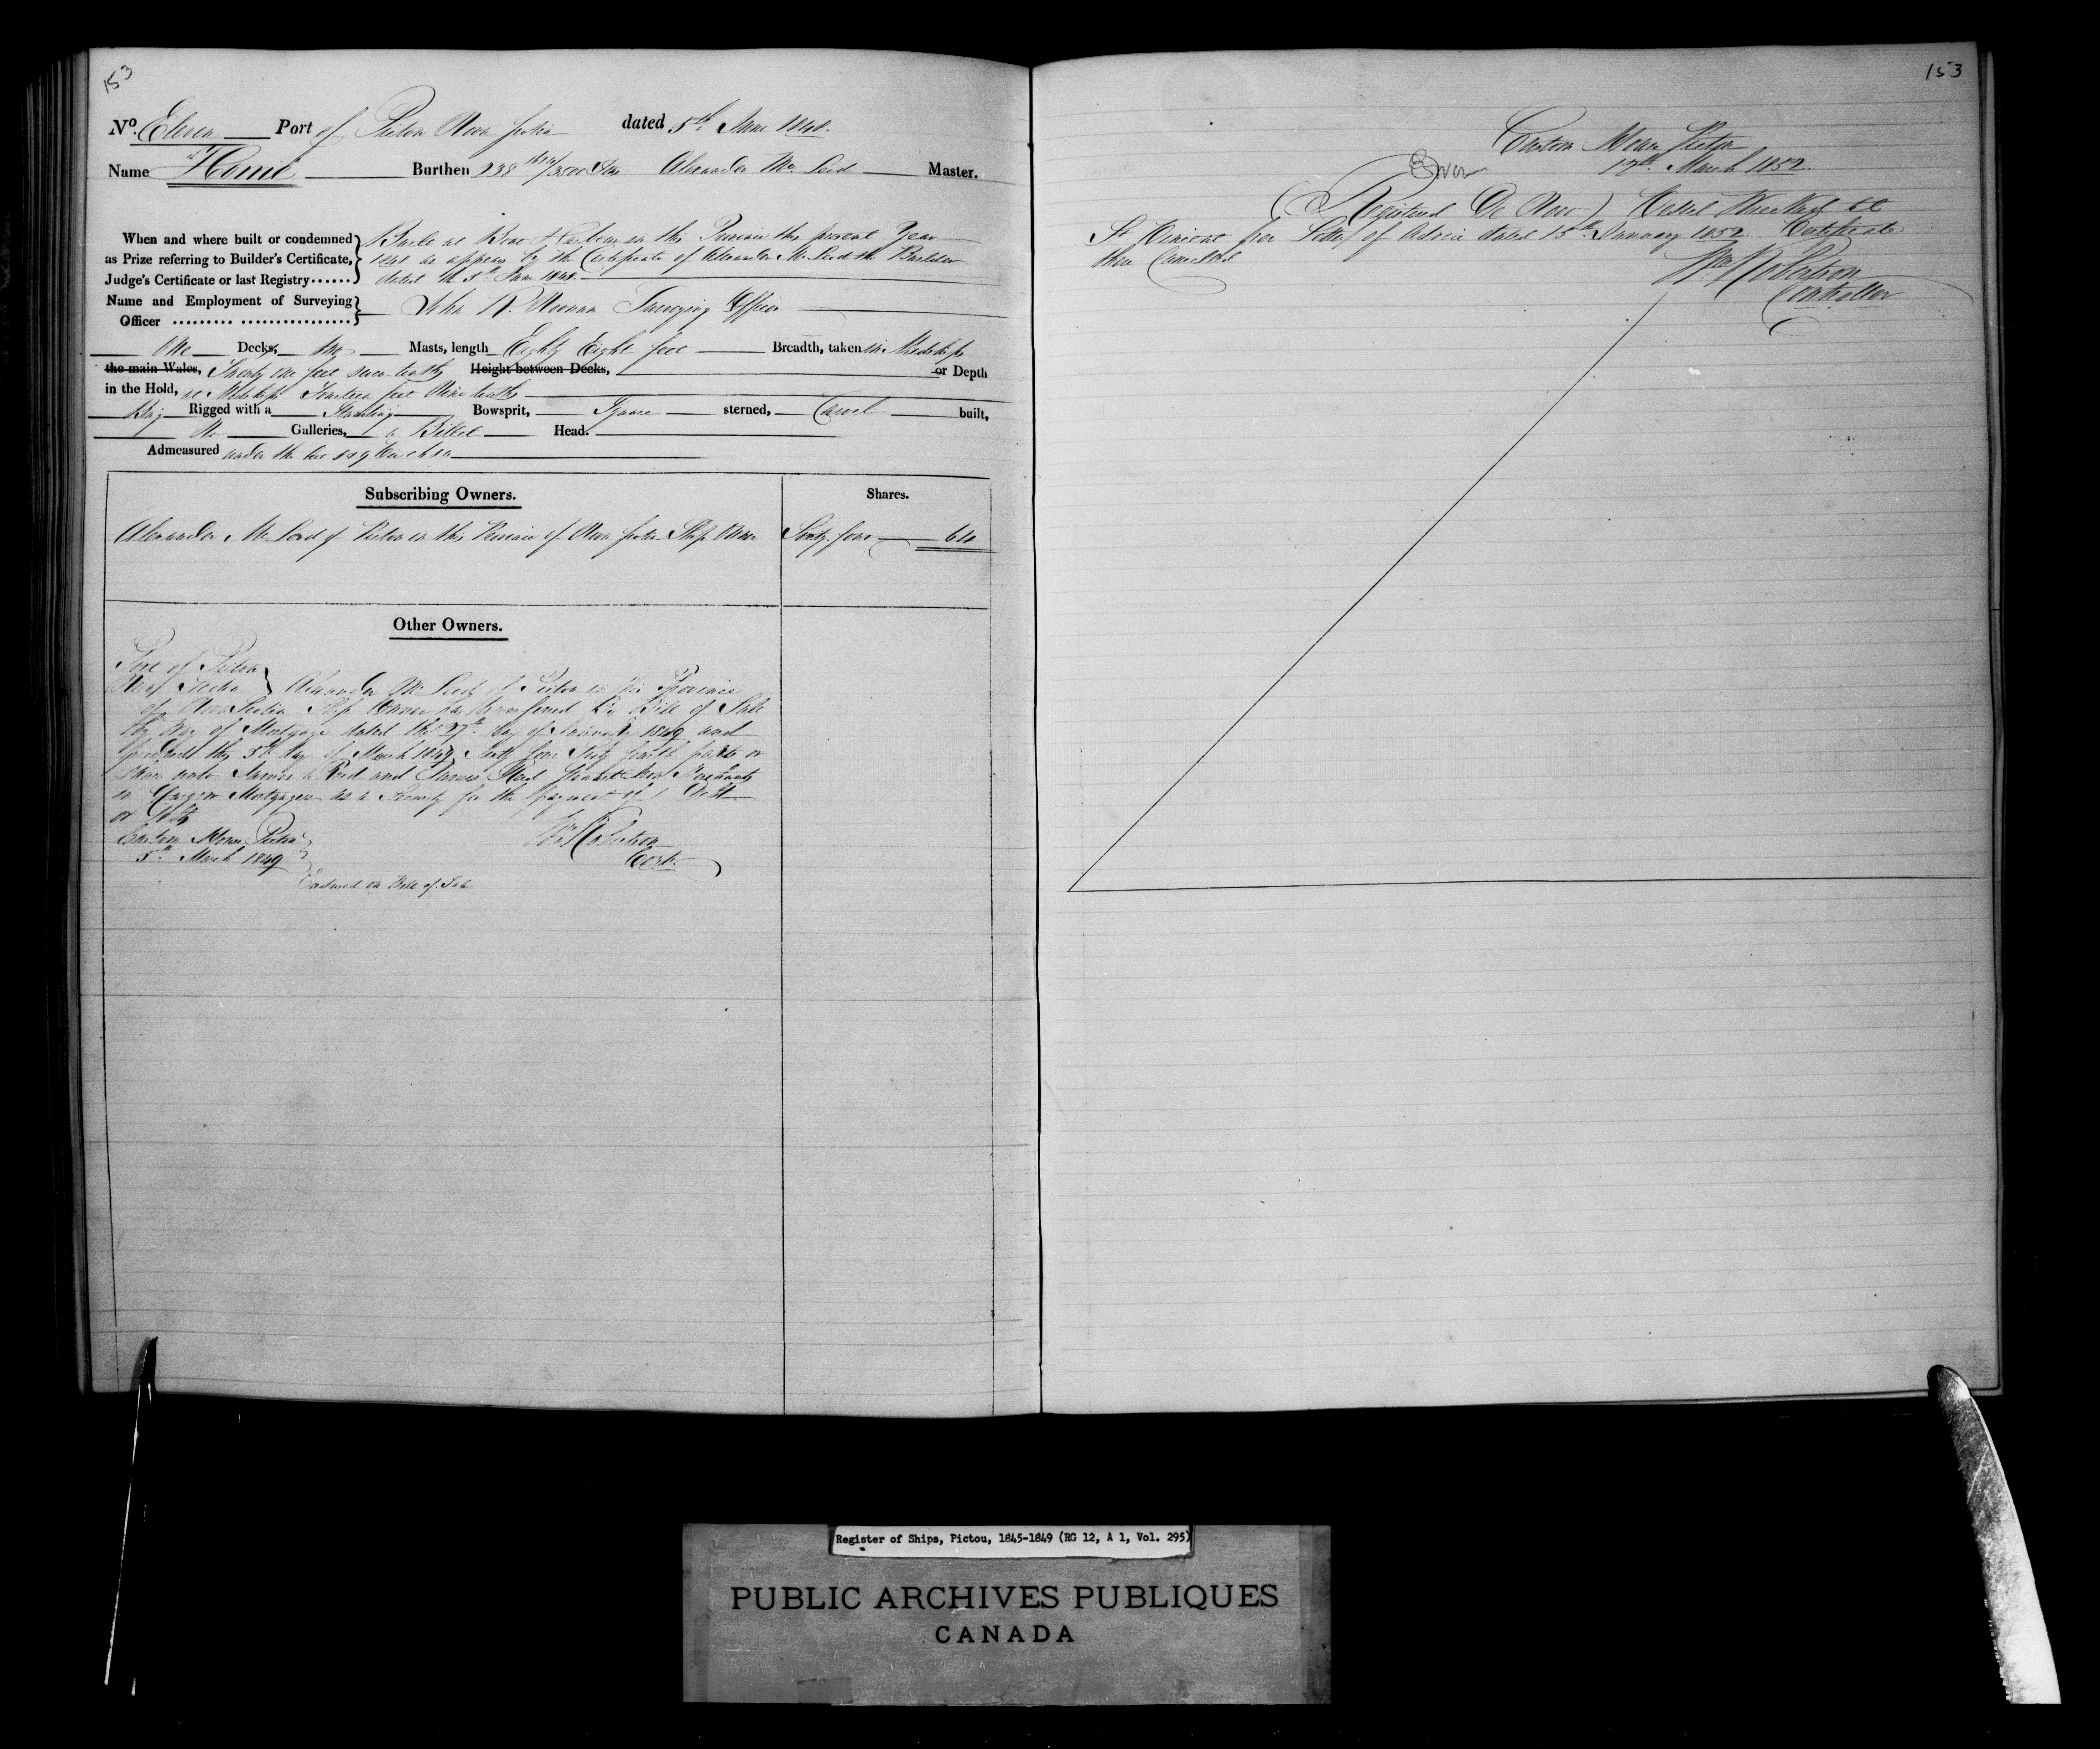 153
No. Eleven Port of Pictou Nova Scotia dated 5th June 1848.
Name "Home" Burthen 238 /3500 Tons Alexander McLeod Master.
When and where built or condemned
as Prize referring to Builder's Certificate,
Judge's Certificate or last Registry......
Built at in this Province the present Year
1848 as appears by the Certificate of Alexander McLeod the Builder
dated the 5th June 1848.
Name and Employment of Surveying
Officer
John Surveying Officer
One Decks, two Masts, length Eighty Eight feet Breadth, taken in Midships
the main Wales, Twenty one feet seven tenths Height between Decks, or Depth
in the Hold, at Midships fourteen feet Nine tenths
Brig Rigged with a Standing Bowsprit, Square sterned, Carvel built,
No Galleries, a Billet Head.
Admeasured under the
Subscribing Owners. Shares.
Alexander McLeod of Pictou in the Province of Nova Scotia Ship Owner Sixty four 64
Other Owners.
Port of Pictou
Nova Scotia } Alexander McLeod of Pictou in the Province
of Nova Scotia Ship Owner has transferred by Bill of Sale
by way of Mortgage dated the 27th day of January 1849 and
produced the 5th day of March 1849 Sixty four Sixty fourth parts or
Shares unto James Reid and James Reid Stewart Merchants
in Glasgow Mortgagees as a Security for the payment of a Debt
or Debts
Custom House Pictou
5th March 1849
Wm Robertson
Contr.
Endorsed on Bill of Sale
153
Custom House Pictou
12th March 1852.
Over
(Registered De Novo) Vessel Wrecked at
St Vincent per Letter of Advice dated 15th January 1852 Certificate
there Cancelled
Wm Robertson
Controller
Register of Ships, Pictou, 1845-1849 (RG 12, A 1, Vol. 295)
PUBLIC ARCHIVES PUBLIQUES
CANADA